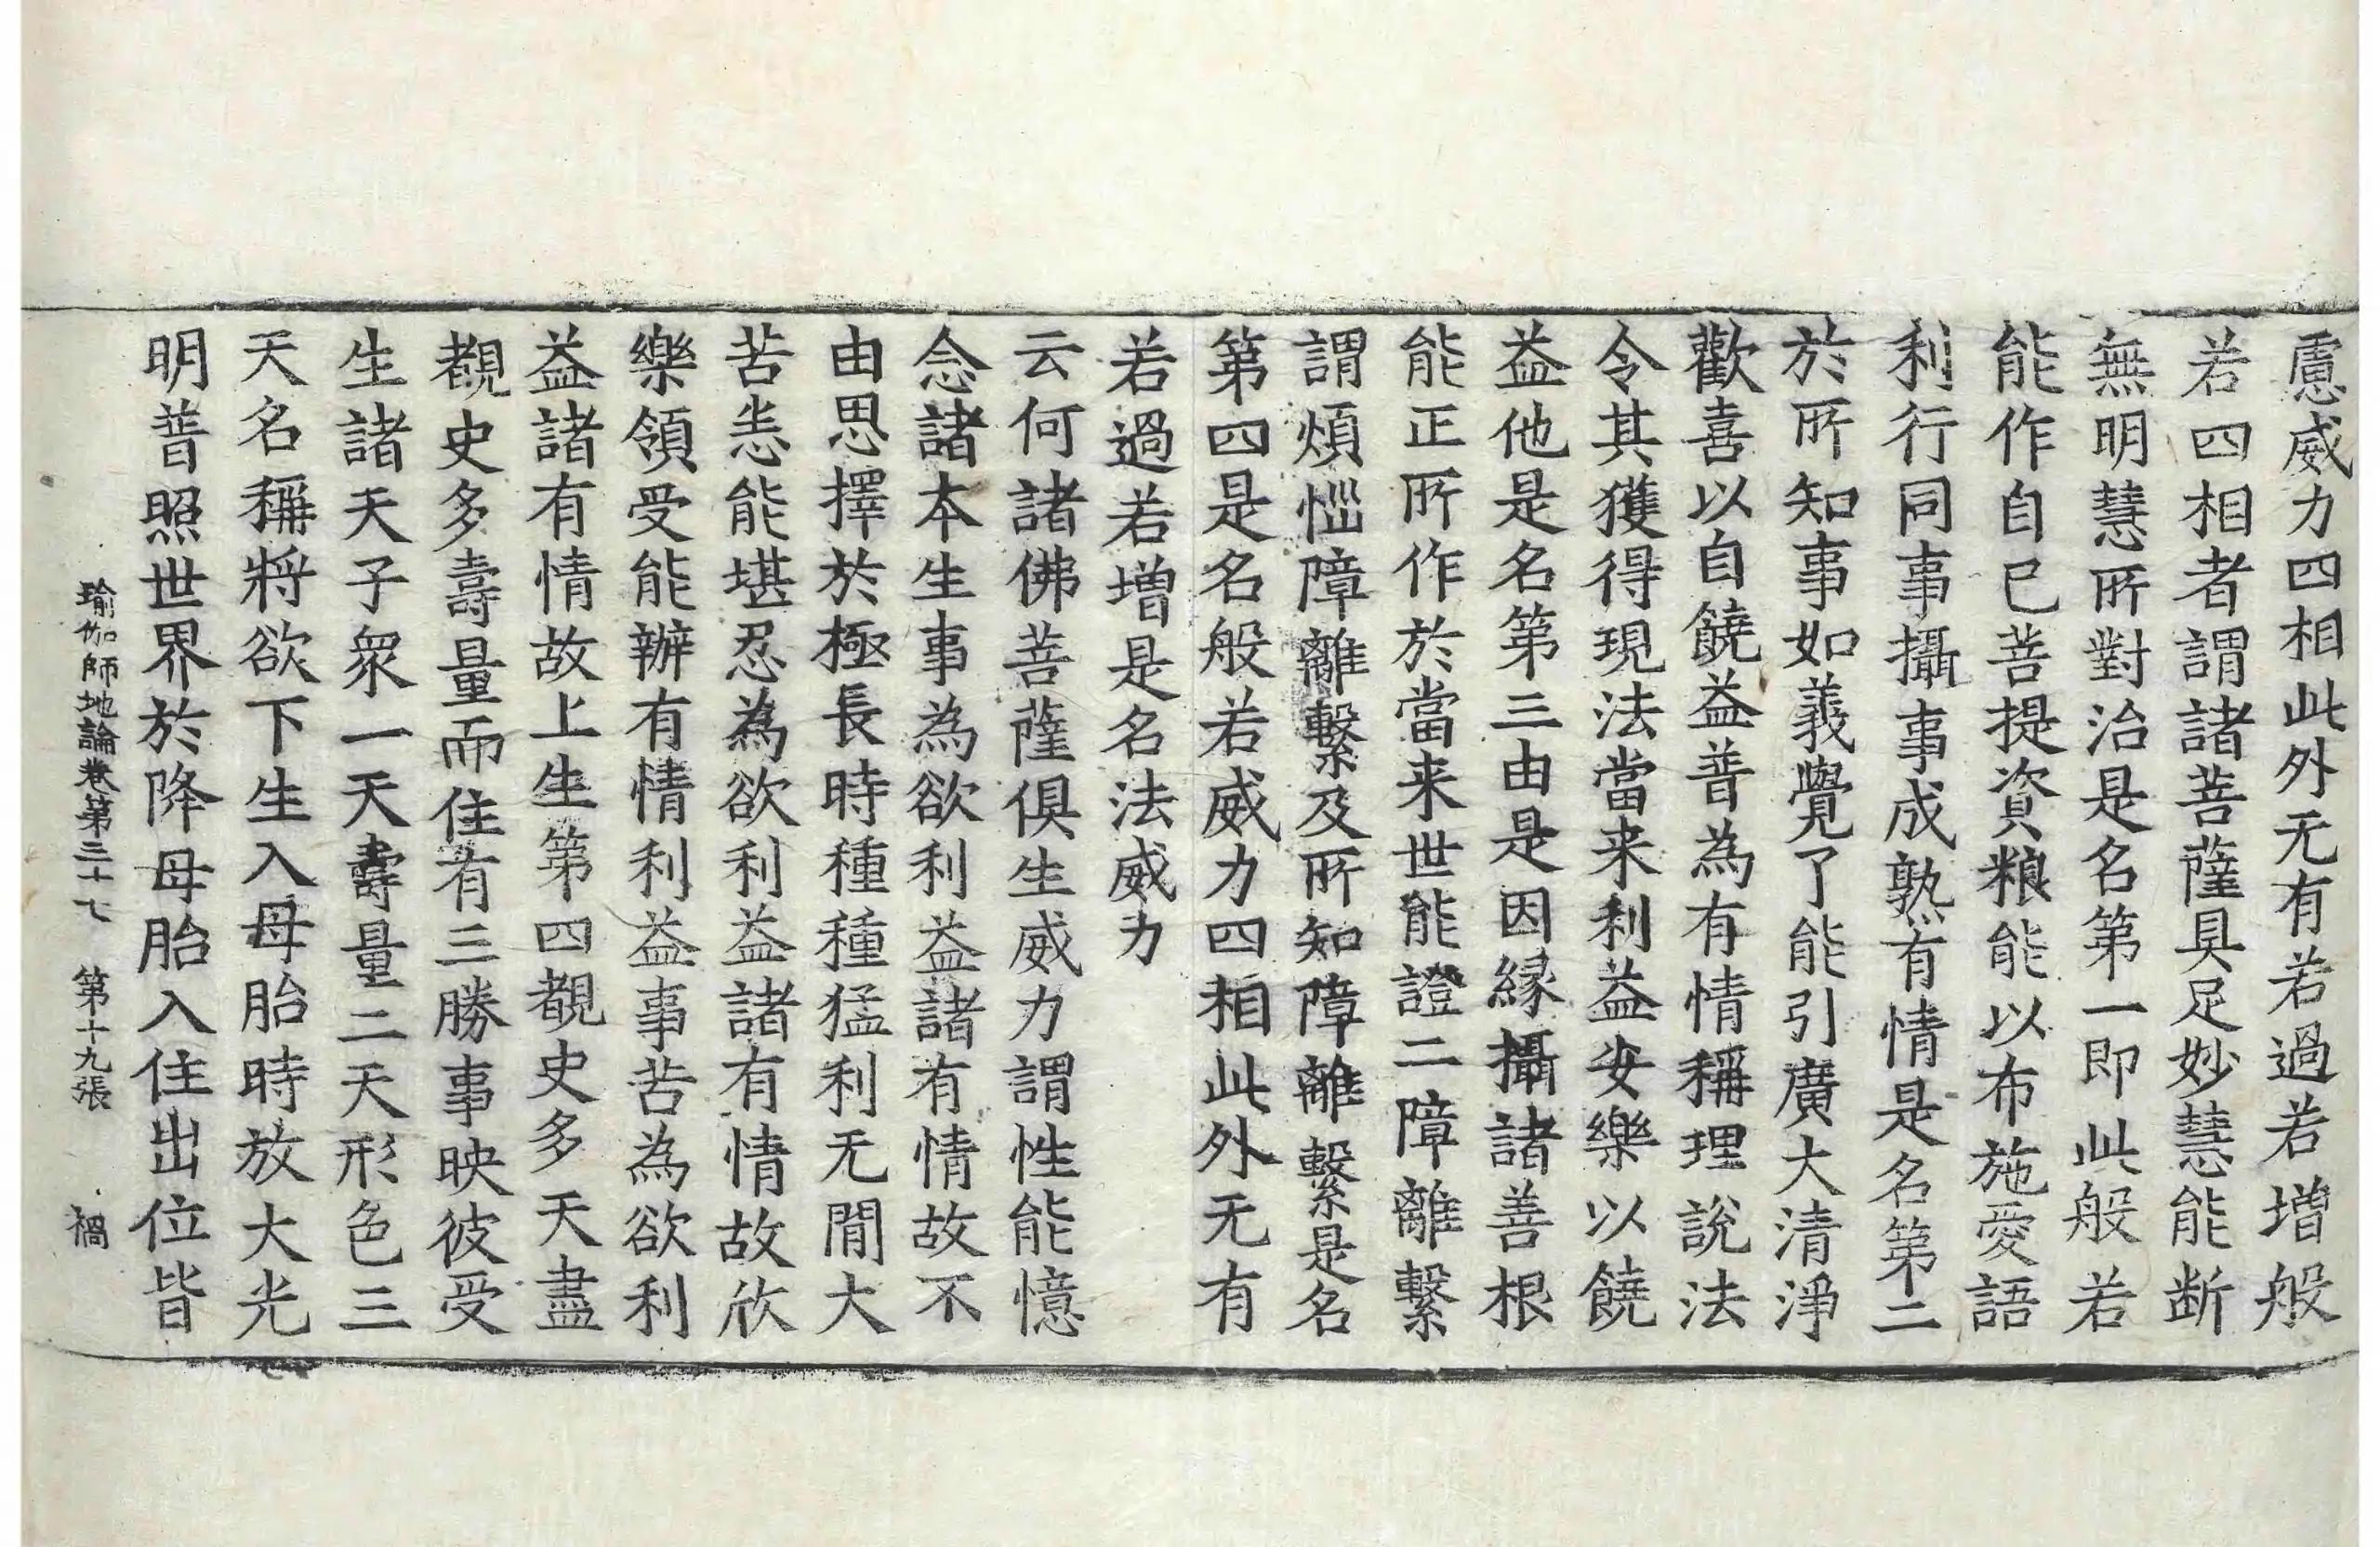 慮威力四相此外无有若過若增般
若四相者謂諸菩薩具足妙慧能断
無明慧所對治是名第一即此般若
能作自已菩提資粮能以布施愛語
利行同事攝事成熟有情是名第二
於所知事如義覺了能引廣大清淨
歡喜以自饒益普為有情稱理說法
令其獲得現法當来利益安樂以饒
益他是名第三由是因緣攝諸善根
能正所作於當来世能證二障離繫
謂煩惱障離繫及所知障離繫是名
第四是名般若威力四相此外无有
若過若增是名法威力
云何諸佛菩薩俱生威力謂性能憶
念諸本生事為欲利益諸有情故不
由思擇於極長時種種猛利无閒大
苦恙能堪忍為欲利益諸有情故欣
樂領受能辦有情利益事苦為欲利
益諸有情故上生第四覩史多天盡
覩史多壽量而住有三勝事映彼受
生諸天子衆一天壽量二天形色三
天名稱將欲下生入母胎時放大光
明普照世界於降母胎入住出位皆
瑜伽師地論卷第三十七 第十九張 禍